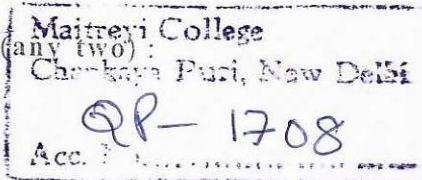 Maitreyi College
(any two) :
Chankaya Puri, New Delhi
QP- 1708
Acc.